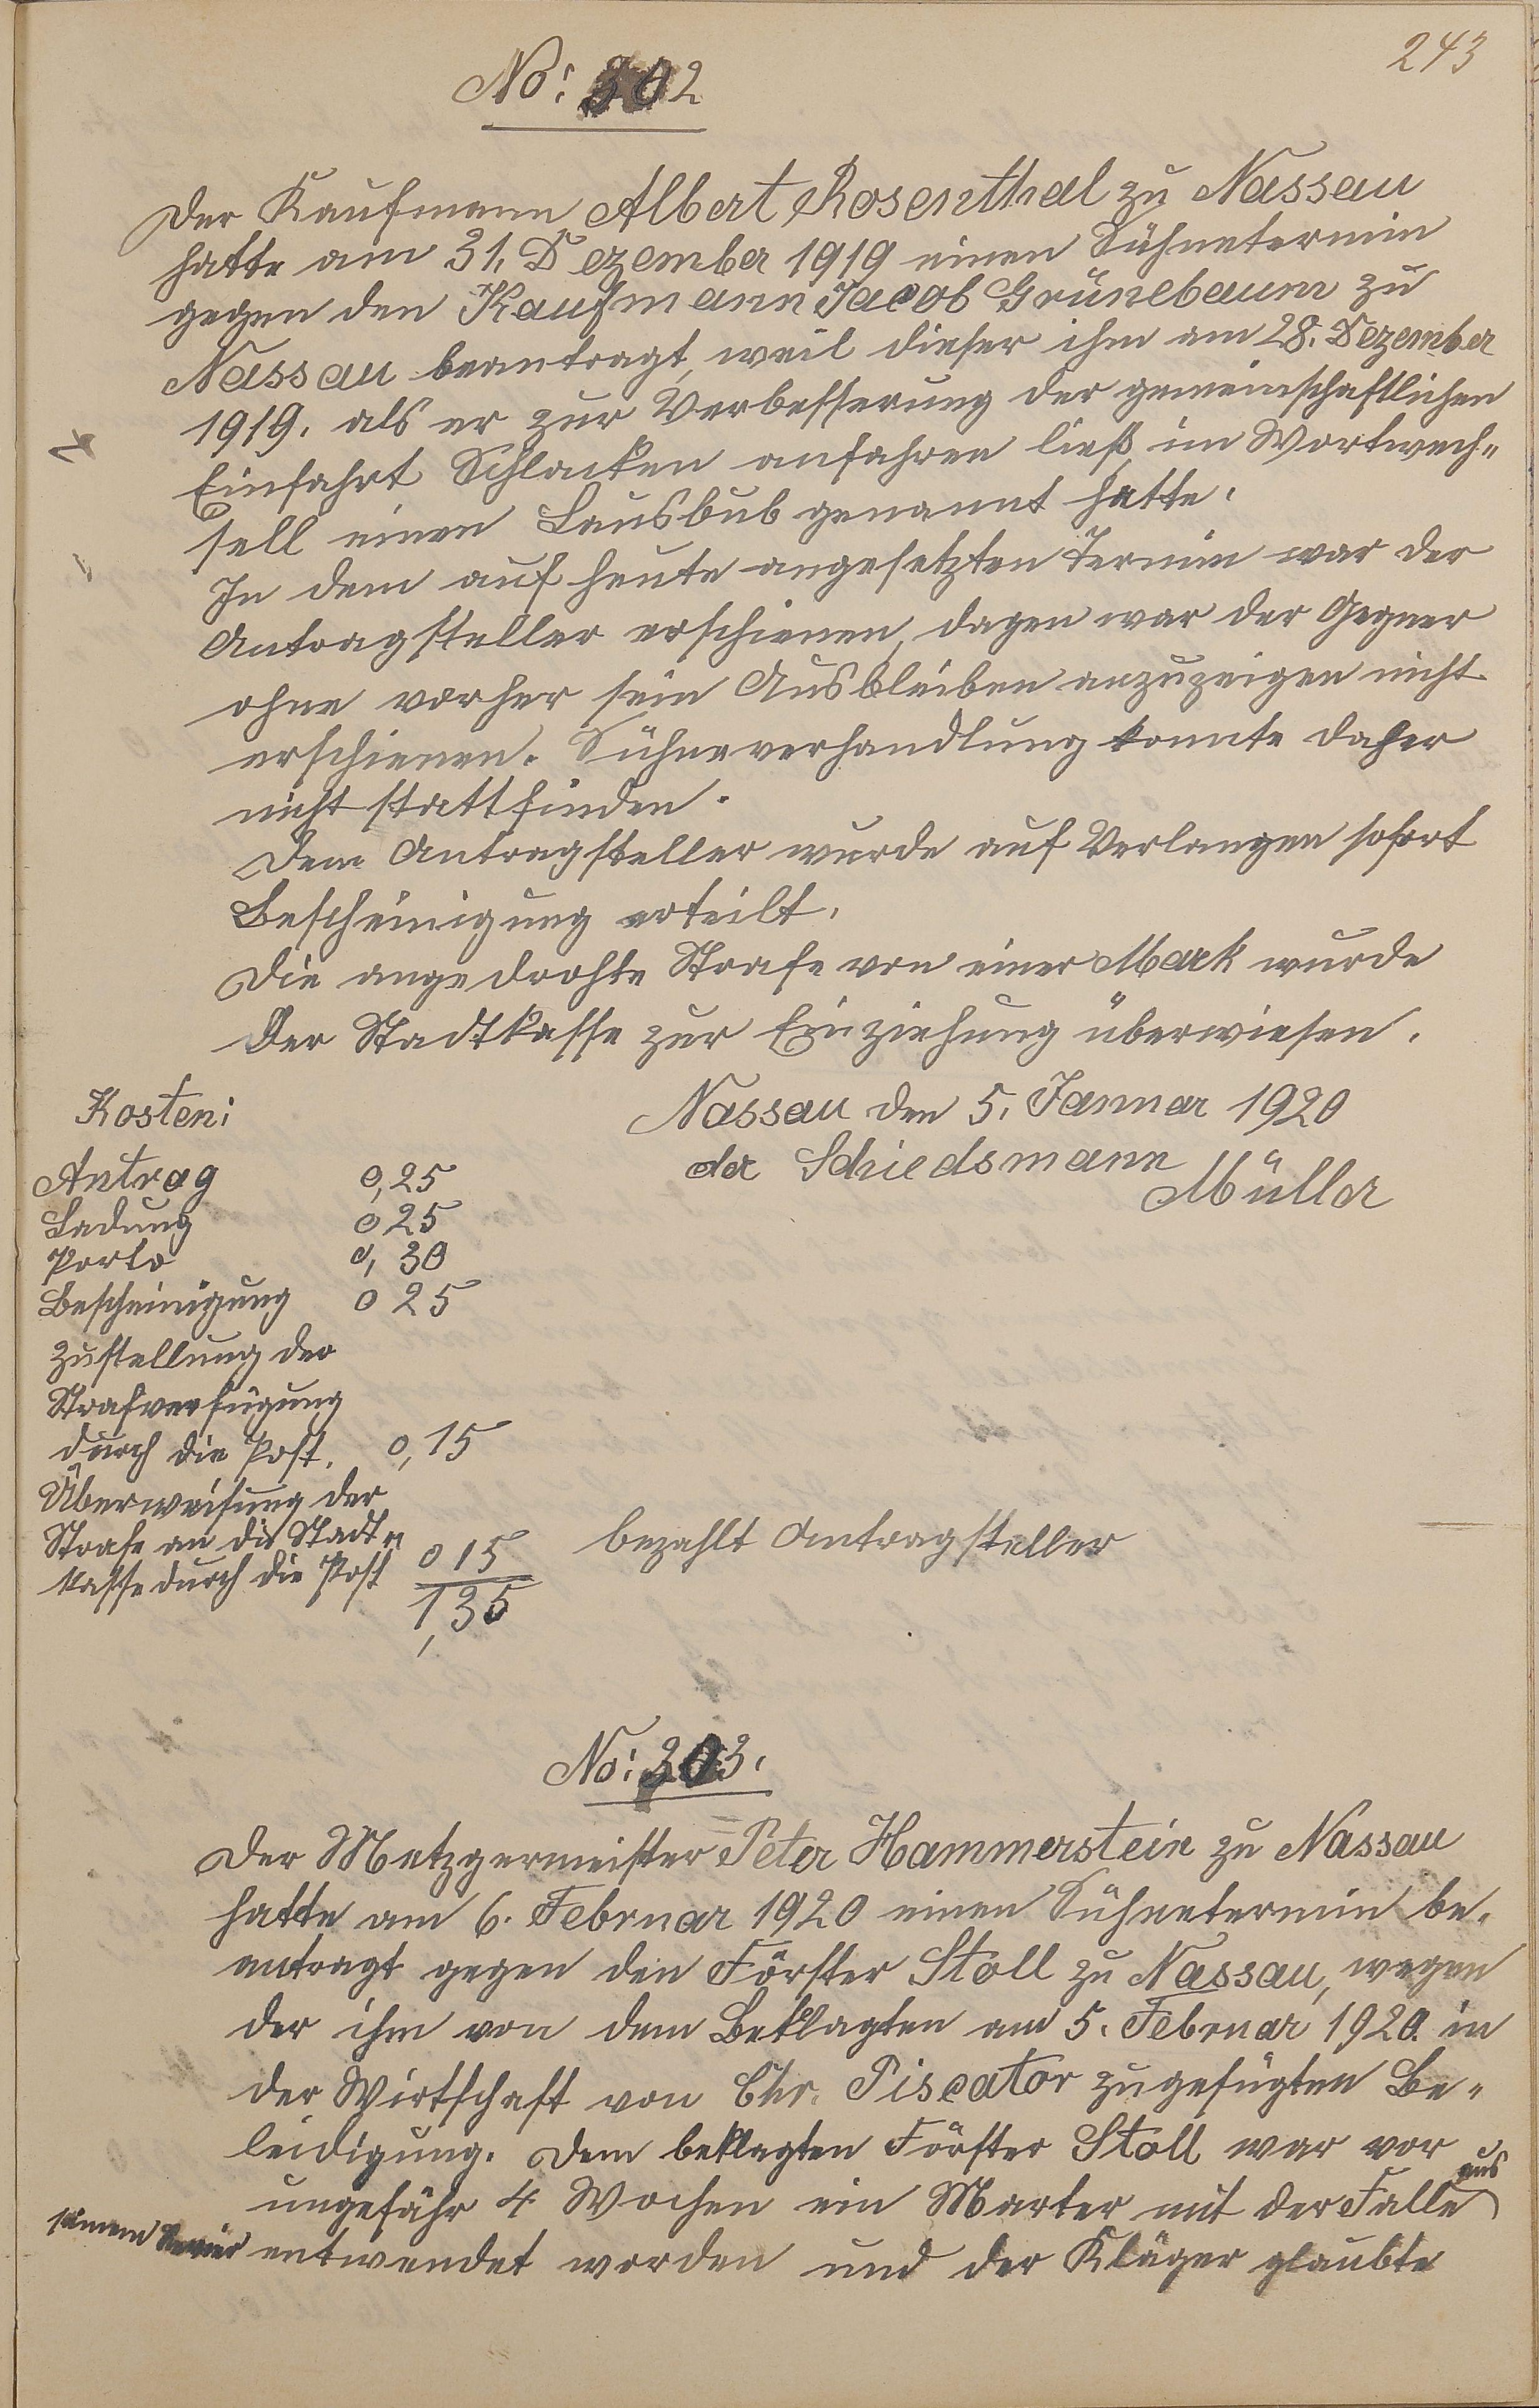 243
No: 302
Der Kaufmann Albert Rosenthal zu Nassau
hatte am 31. Dezember 1919 einen Sühnetermin
gegen den Kaufmann Jacob Grünebaum zu
Nassau beantragt, weil dieser ihm am 28. Dezember
1919. als er zur Verbesserung der gemeinschaftlichen
Einfahrt Schlacken anfahren ließ, im Wortwech-
sell einen Lausbub genannt hatte.
In dem auf heute angesetzten Termin war der
Antragsteller erschienen, dagen war der Gegner
ohne vorher sein Ausbleiben anzuzeigen nicht
erschienen. Sühneverhandlung konnte daher
nicht stattfinden.
Dem Antragsteller wurde auf Verlangen sofort
Bescheinigung erteilt.
Die angedrohte Strafe von einer Mark wurde
der Stadtkasse zur Einziehung überwiesen.
Nassau den 5. Januar 1920
der Schiedsmann
Müller
Kosten:
Antrag 0,25
Ladung 0 25
Porto 0, 30
Bescheinigung 0 25
Zustellung der
Strafverfügung
durch die Post. 0,15
Überweisung der
Strafe an die Stadt-
kasse durch die Post 0 15
1,35
bezahlt Antragsteller
No: 303.
Der Metzgermeister Peter Hammerstein zu Nassau
hatte am 6. Februar 1920 einen Sühnetermin be-
antragt gegen den Förster Stoll zu Nassau, wegen
der ihm von dem Beklagten am 5. Februar 1920. in
der Wirtschaft von Chr. Piscator zugefügten Be-
leidigung. Dem beklagten Förster Stoll war vor
ungefähr 4 Wochen ein Marter mit der Falle aus
seinem Revier entwendet worden und der Kläger glaubte